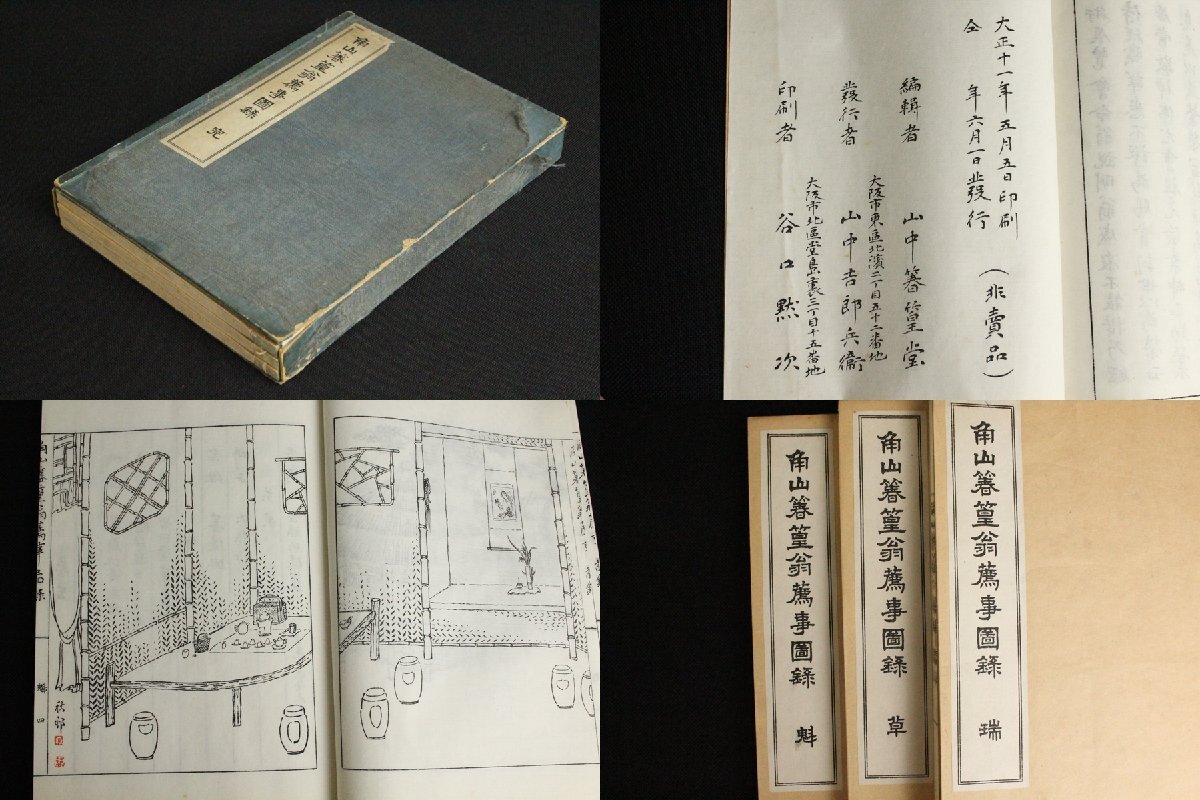 角山箺篁翁薦事圖錄 完
大正十一年五月五日印刷
仝 年六月一日發行
(非賣品)
編輯者 山中箺篁堂
大阪市東區北濱二丁目五十二番地
發行者 山中吉郎兵衞
大阪市北區堂島裏三丁目十五番地
印刷者 谷口默次
秋邨
角山箺篁翁薦事圖錄 瑞
角山箺篁翁薦事圖錄 草
角山箺篁翁薦事圖錄 魁